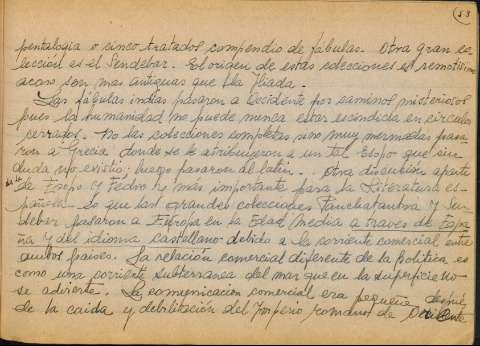 53
pentalogia o cinco tratados compendio de fábulas. Otra gran co
lección es el Sendebar. El origen de estas colecciones es remotísimo
acaso son mas antiguas que la Iliada.
Las fábulas indias pasaron a Occidente por caminos misteriosos
pues la humanidad no puede nunca estar escindida en círculos
cerrados. No las colecciones completas sino muy mermadas pasa
ron a Grecia, donde se le atribuyeron a un tal Esopo que sin
duda no existió; luego pasaron al latin. Otra discusión aparte
de Esopo y Fedro y más importante para la Literatura es-
pañola es que las grandes colecciones Panchatantra y Sen
debar pasaron a Europa en la Edad Media a traves de Espa
ña y del idioma castellano debido a la corriente comercial entre
ambos paises. La relación comercial diferente de la Politica es
como una corriente subterranea del mar que en la superficie no
se advierte. La comunicacion comercial era pequeña despues
de la caida y debilitación del Imperio romano de Occidente